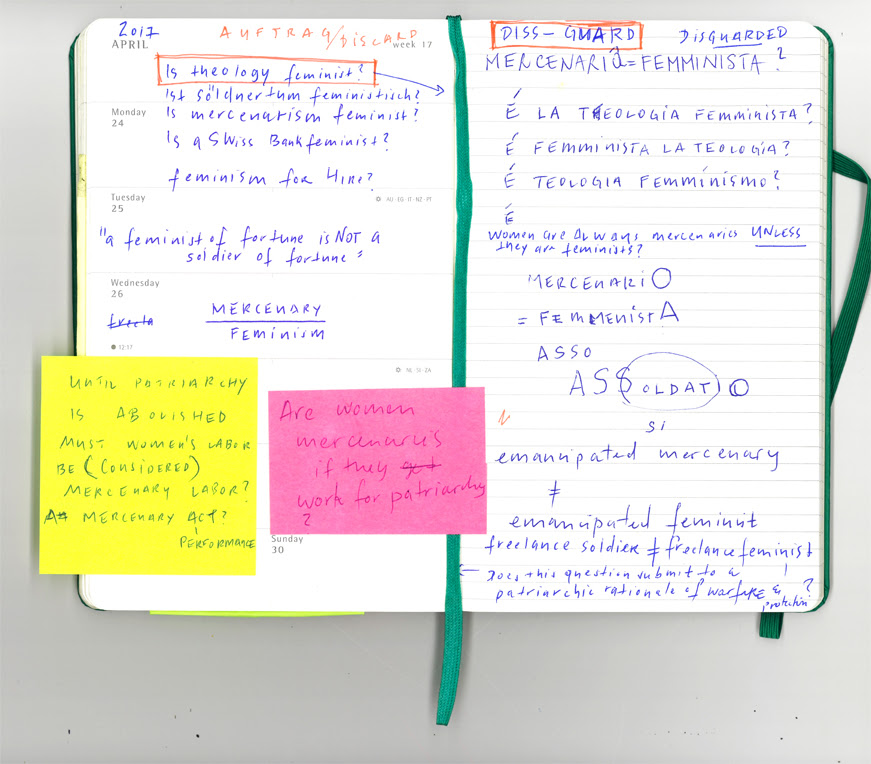 2017
APRIL
AUFTRAG/DISCARD
week 17
Is theology feminist?
Ist söldnertum feministisch?
Monday
24
Is mercenarism feminist?
Is a Swiss Bank feminist?
feminism for HIRE?
Tuesday
25
AU · EG · IT · NZ · PT
"a feminist of fortune is NOT a
soldier of fortune"
Wednesday
26
freela
MERCENARY
FEMINISM
12:17
NL · SI · ZA
UNTIL PATRIARCHY
IS ABOLISHED
MUST WOMEN'S LABOR
BE (CONSIDERED)
MERCENARY LABOR?
A MERCENARY ACT?
PERFORMANCE
Are women
mercenaries
if they
work for patriarchy
?
Sunday
30
DISS-GUARD
DISGUARDED
MERCENARIA = FEMMINISTA?
É LA TEOLOGIA FEMMINISTA?
É FEMMINISTA LA TEOLOGÍA?
É TEOLOGIA FEMMÍNÍSMO?
É
Women are ALWAYS mercenaries UNLESS
they are feminists?
MERCENARIO
= FEMMENISTA
ASSO
ASSOLDATO
si
emancipated mercenary
≠
emancipated feminist
freelance soldier ≠ freelance feminist
Does this question submit to a
patriarchic rationale of warfare &
protection?